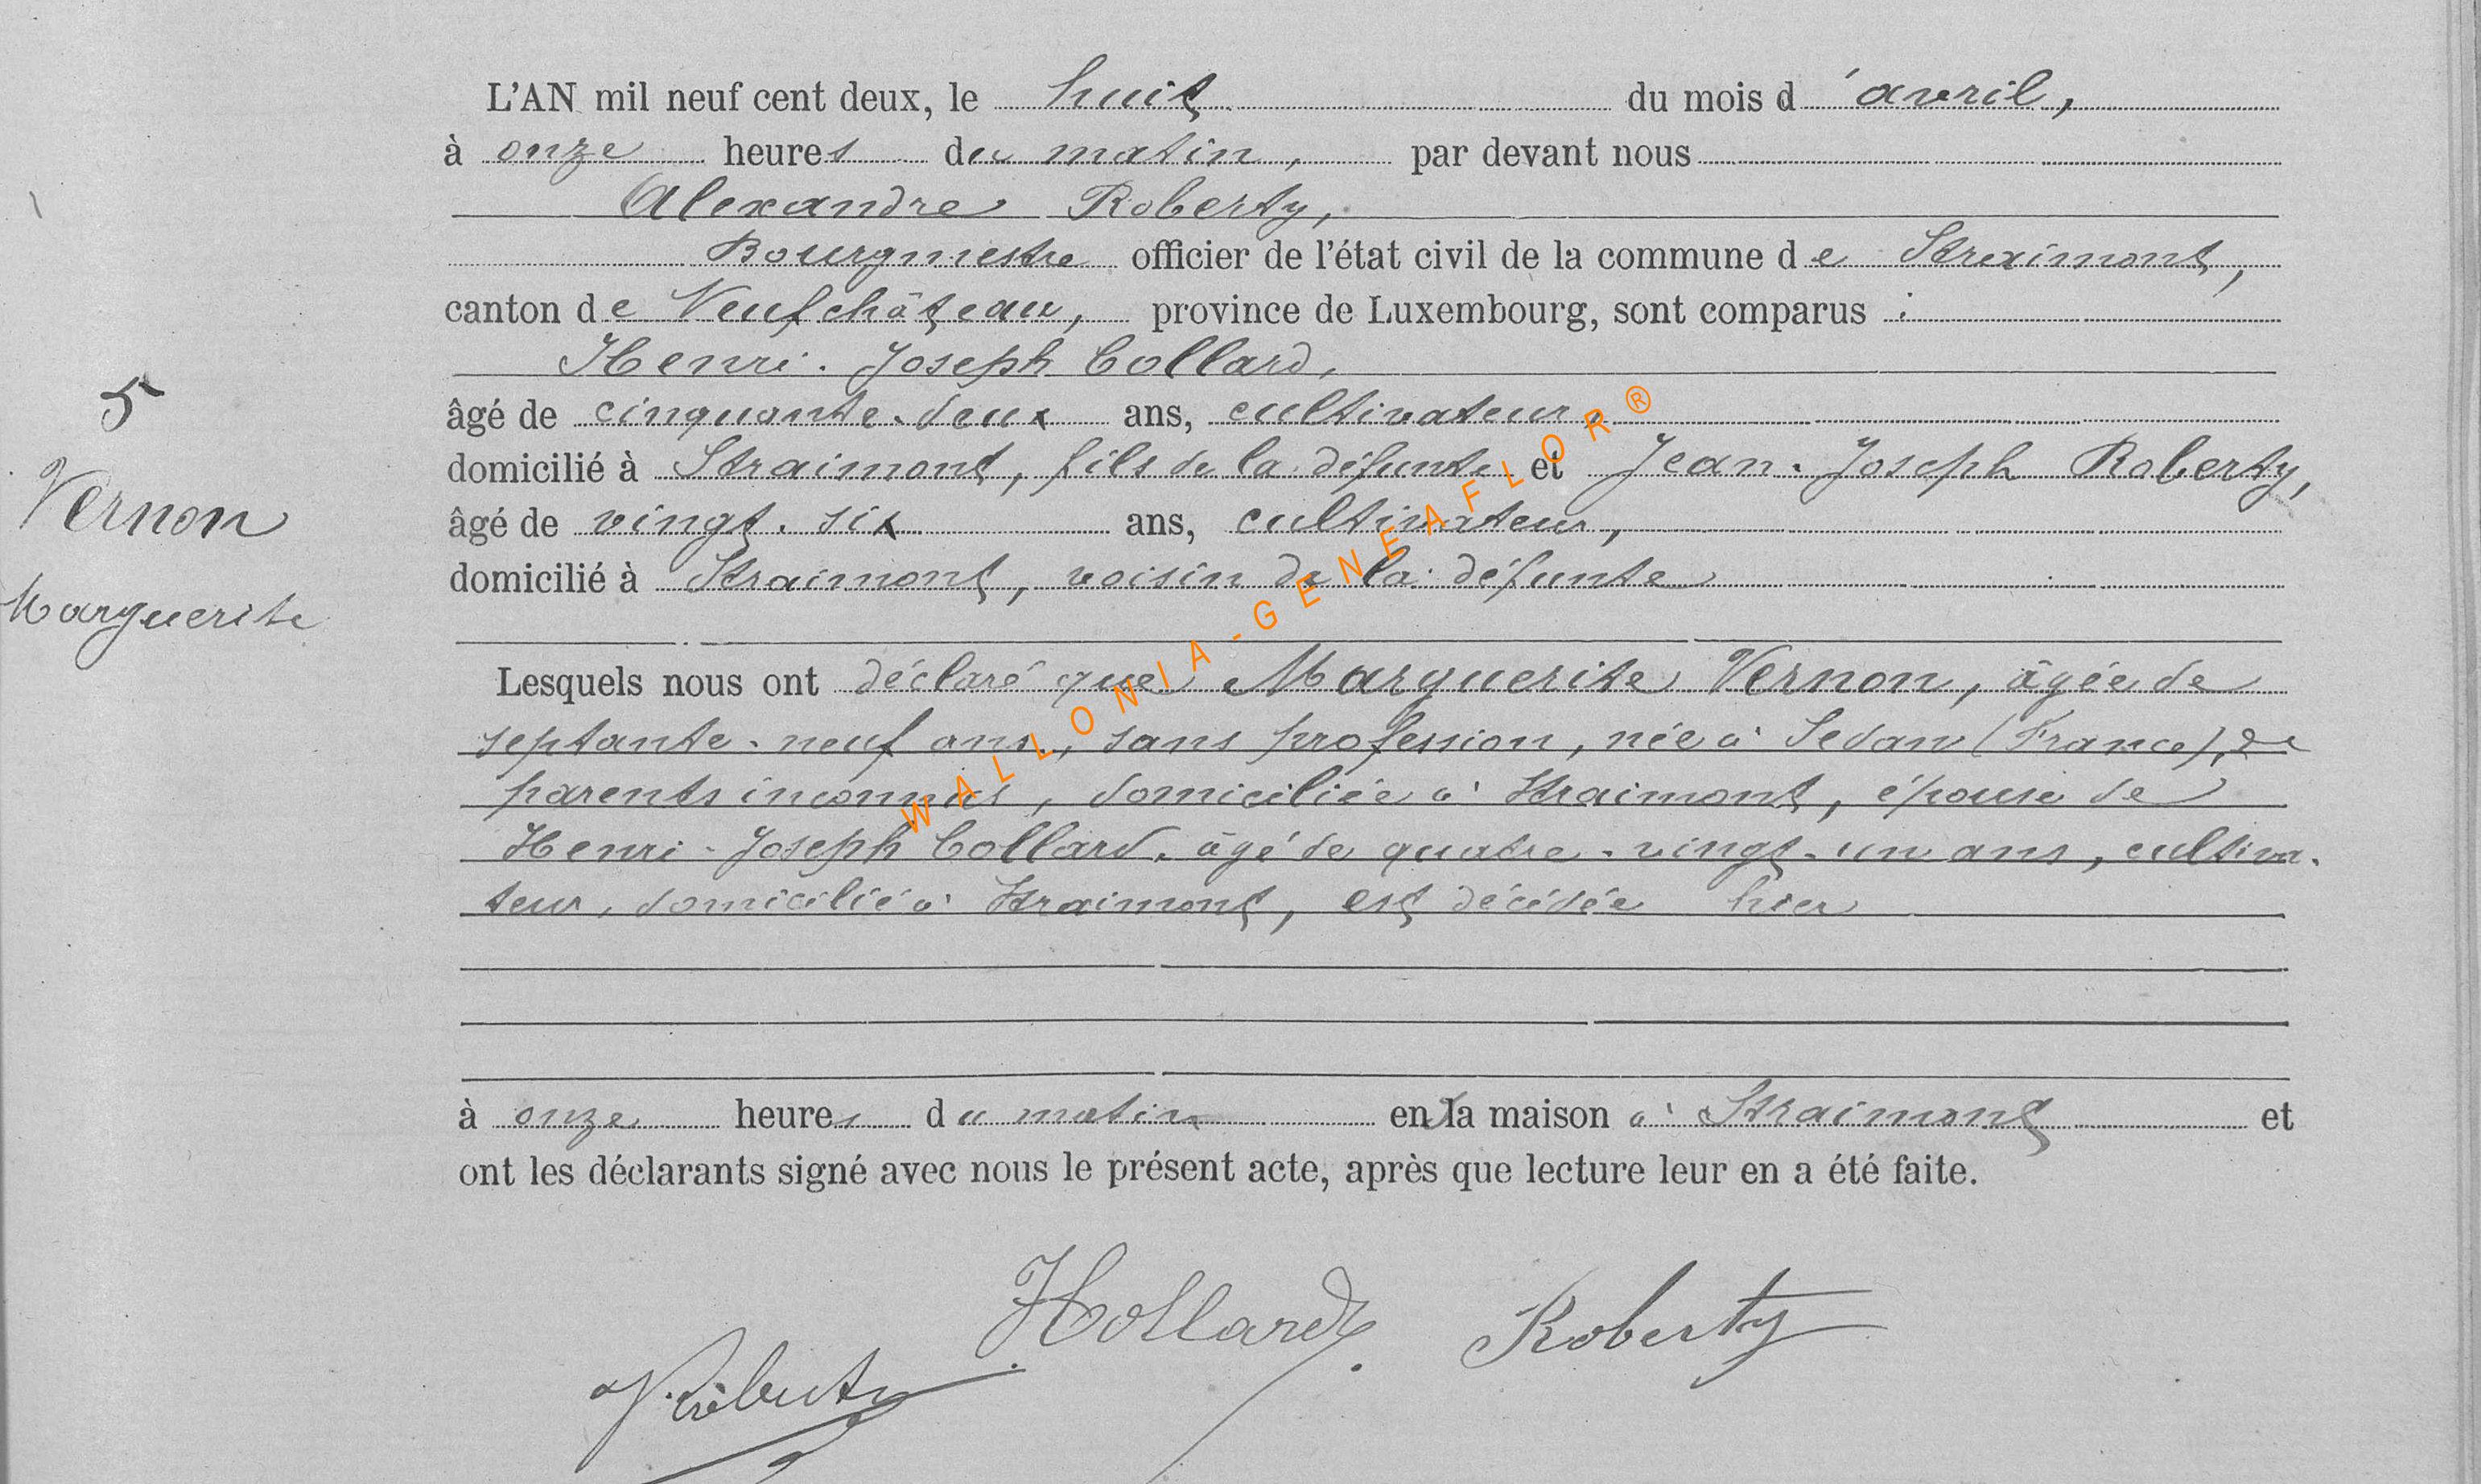 L'AN mil neuf cent deux, le huit du mois d'avril,
à onze heures du matin, par devant nous
Alexandre Roberty,
Bourgmestre officier de l'état civil de la commune de Straimont,
canton de Neufchâteau, province de Luxembourg, sont comparus :
Henri-Joseph Collard,
âgé de cinquante-deux ans, cultivateur,
domicilié à Straimont, fils de la défunte et Jean-Joseph Roberty,
âgé de vingt-six ans, cultivateur,
domicilié à Straimont, voisin de la défunte
5
Vernon
Marguerite
Lesquels nous ont déclaré que Marguerite Vernon, âgée de
septante-neuf ans, sans profession, née à Sedan (France), de
parents inconnus, domiciliée à Straimont, épouse de
Henri-Joseph Collard, âgé de quatre-vingt-un ans, cultiva-
teur, domicilié à Straimont, est décédée hier
à onze heures du matin en sa maison à Straimont et
ont les déclarants signé avec nous le présent acte, après que lecture leur en a été faite.
HCollard Roberty
Roberty
WALLONIA-GENEAFLOR®